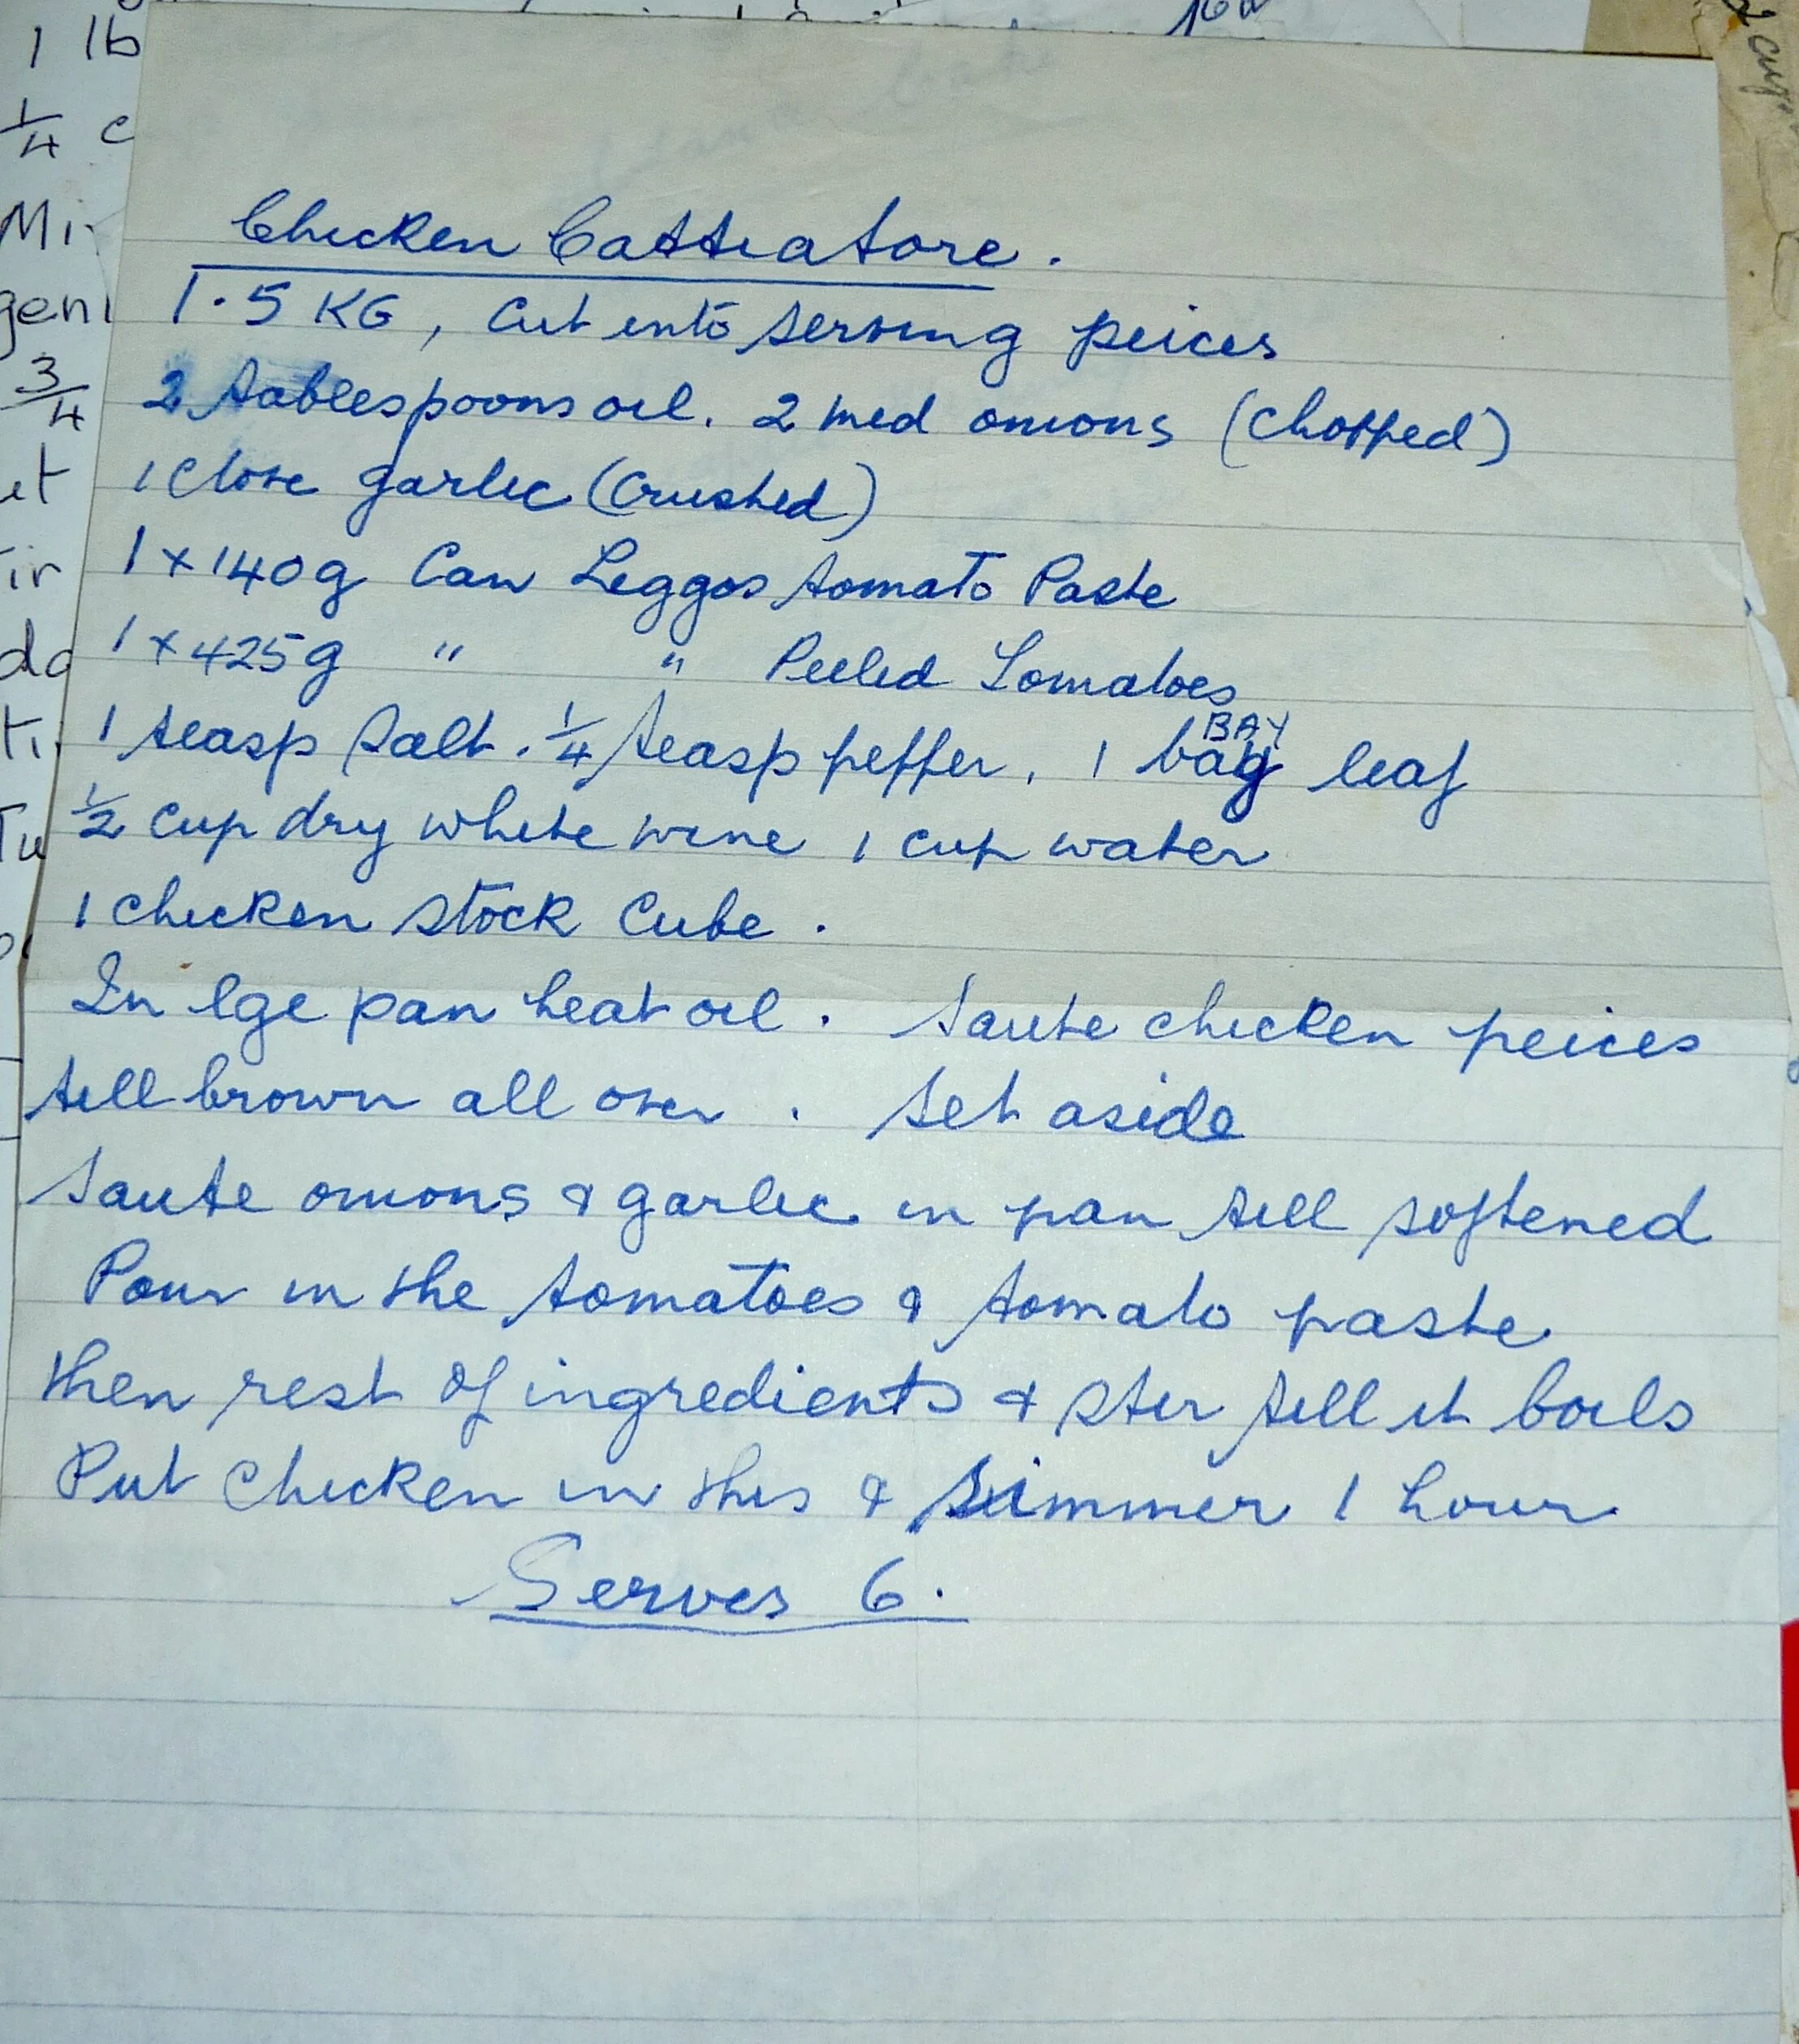 Chicken Cattiatore.
1.5 KG, Cut into serving peices
2 tablespoons oil. 2 med onions (Chopped)
1 Clove garlic (Crushed)
1 x 140g Can Leggos tomato Paste
1 x 425g " " Peeled Tomatoes
BAY
1 teasp Salt. 1/4 teasp pepper. 1 bay leaf
1/2 Cup dry white wine 1 cup water
1 chicken stock Cube.
In lge pan heat oil. Saute chicken peices
till brown all over. Set aside
Saute onions & garlic in pan till softened
Pour in the tomatoes & tomato paste
then rest of ingredients & stir till it boils
Put Chicken in this & simmer 1 hour
Serves 6.
1 lb
1/4 c
3/4